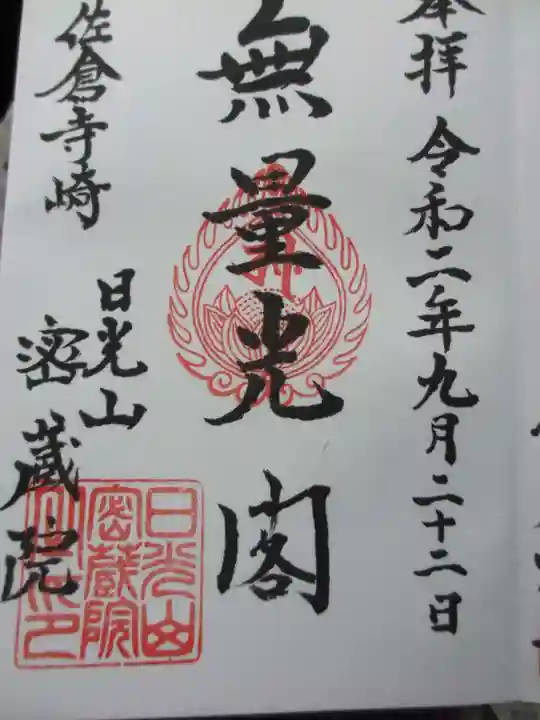 奉拝
令和二年九月二十二日
無量光閣
佐倉寺崎
日光山
密蔵院
日光山
密蔵院